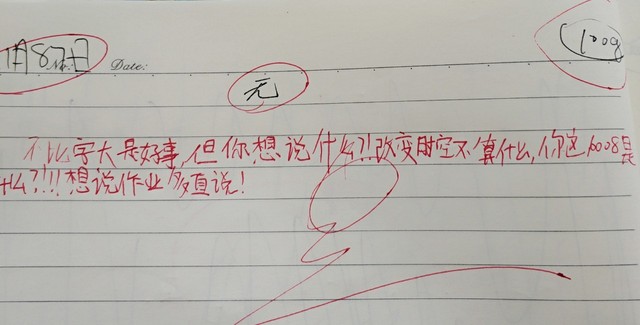 1月87日 No.: Date: 1008
无
不比字大是好事,但你想说什么?!改变时空不算什么,你这1008是
什么?!!!想说作业多直说!